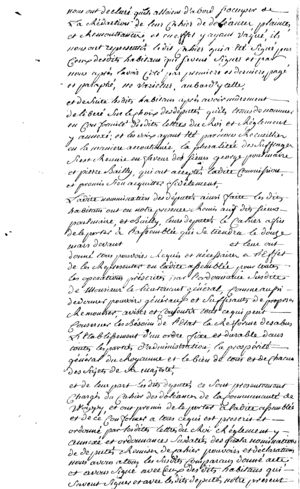 nous ont declaré qu'ils alloient d'abord s'occuper de
La Rédaction de leur Cahier de doléances, plaintes
et Remontrances, et en effet y ayant vaqué, ils
nous ont representé ledit Cahier qui a été Signé par
Ceux desdits habitans qui savent Signer, et par
nous après l'avoir Coté par premiere et derniere page
et paraphé, ne varietur, au bas d'icelle.
et de suite lesdits habitans après avoir murement
deliberé Sur le choix des deputés qu'ils Sont tenus de nommer
en Conformité desdites lettres du Roi et Règlement
y annexé, et les voix ayant été par nous Recueillies
en la maniere accoutumée, la pluralité des Suffrages
S'est Reunie en faveur des Sieurs George
et pierre Bailly, qui ont accepté ladite Commission
et promis S'en acquitter fidelement.
Ladite nomination des deputés ainsi faite lesdits
habitans ont en notre presence Remis auxdits Sieurs
et Bailly leurs deputés le Cahier afin
de le porter à l'assemblée qui Se tiendra le douze
mars devant et leur ont
donné tous pouvoirs Requis et necessaires à l'effet
de les Representer en ladite assemblée pour toutes
les operations prescrites par l'ordonnance Susdite
de Monsieur le lieutenant général, comme aussi
de donner pouvoirs généraux et Suffisants de proposer,
Remontrer, aviser et consentir tout ce qui peut
Concerner les besoins de l'Etat, la Reforme des abus
L'Etablissement d'un ordre fixe et durable dans
toutes les parties d'administration, la prosperité
générale du Royaume et le bien de tous et de chacun
des Sujets de Sa majesté,
et de leur part lesdits deputés Se Sont presentement
Chargés du Cahier des doléances de la Communauté de
et ont promis de le porter à ladite assemblée
et de se Conformer à tout ce qui est prescrit et
ordonné par lesdites lettres du Roi, Règlement y
annexé et ordonnance Susdatée, desquelles nominations
de deputés, Remise de cahier, pouvoirs et déclarations
nous avons à tous les Susdits comparans donné acte
et avons Signé avec Ceux desdits habitans qui
Savent Signer et avec lesdits deputés notre present